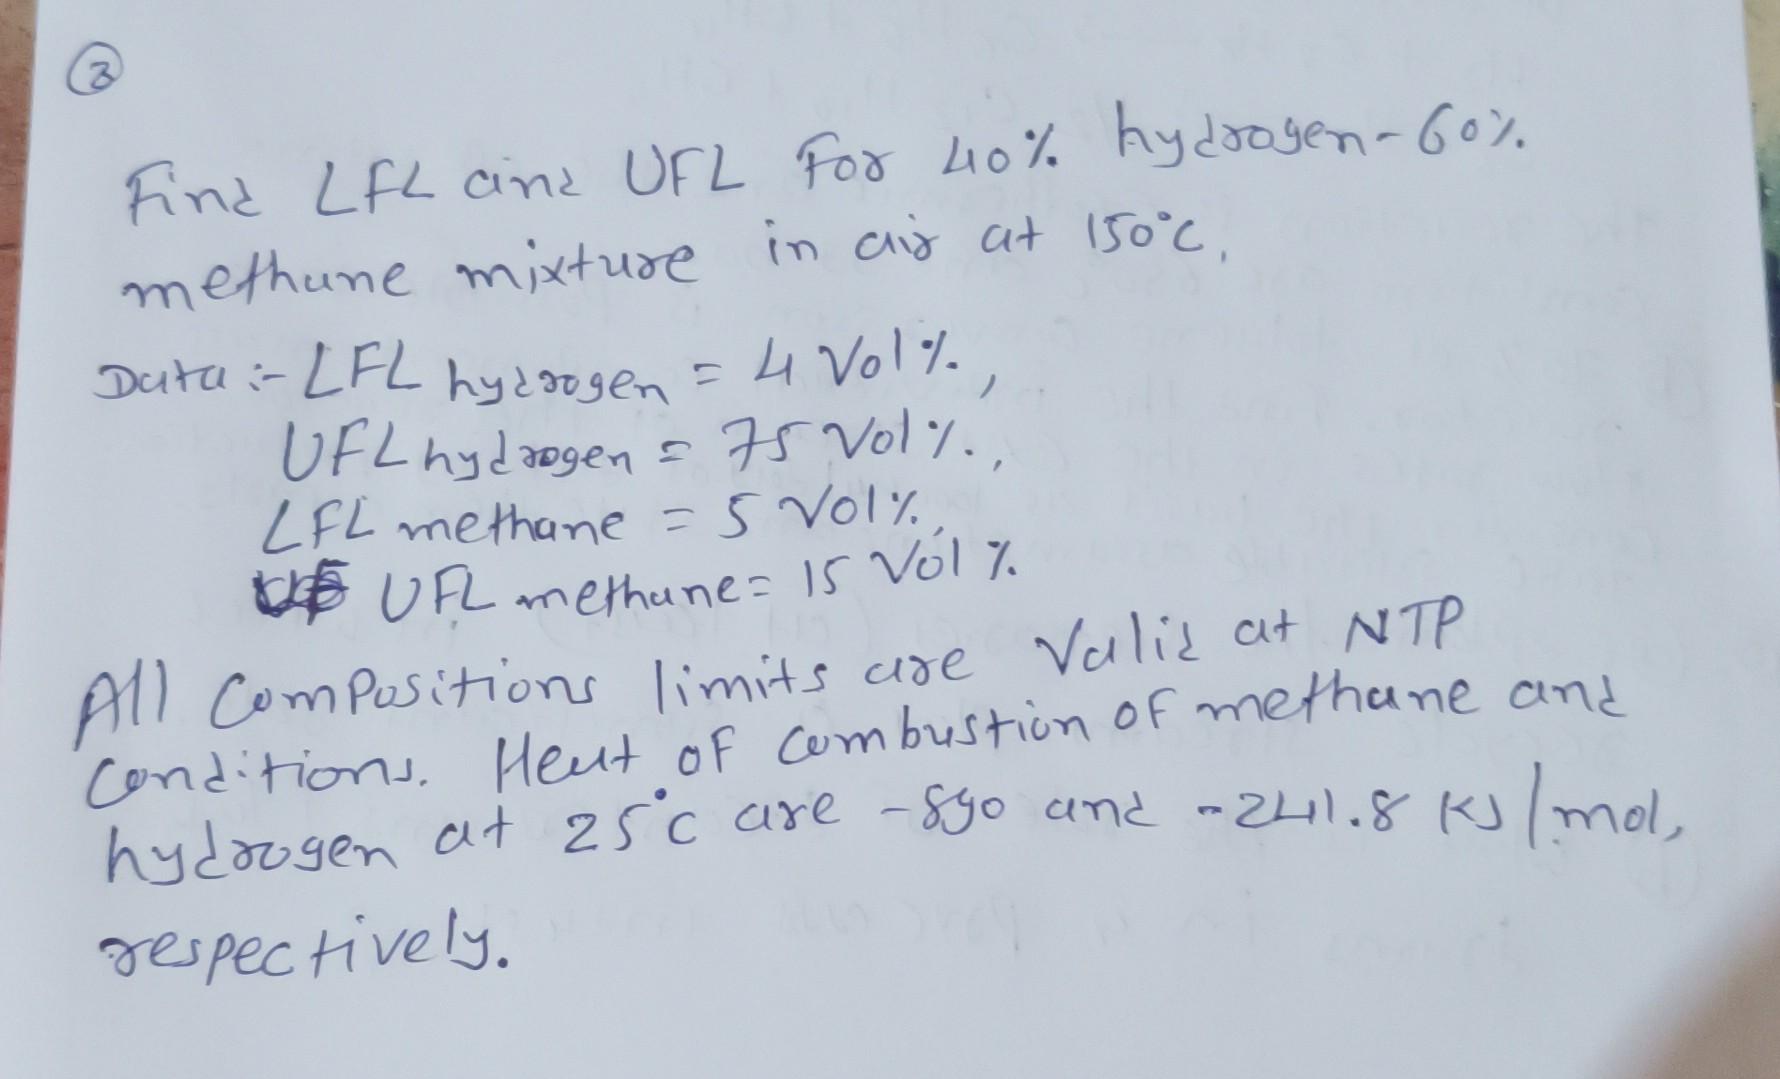 3
Find LFL and UFL For 40% hydrogen-60%
methane mixture in air at 150°C.
Data :- LFL hydrogen = 4 Vol%,
UFL hydrogen = 75 Vol%,
LFL methane = 5 Vol%,
UFL methane = 15 Vol%
All Compositions limits are valid at NTP
Conditions. Heat of Combustion of methane and
hydrogen at 25°C are -890 and -241.8 KJ/mol,
respectively.